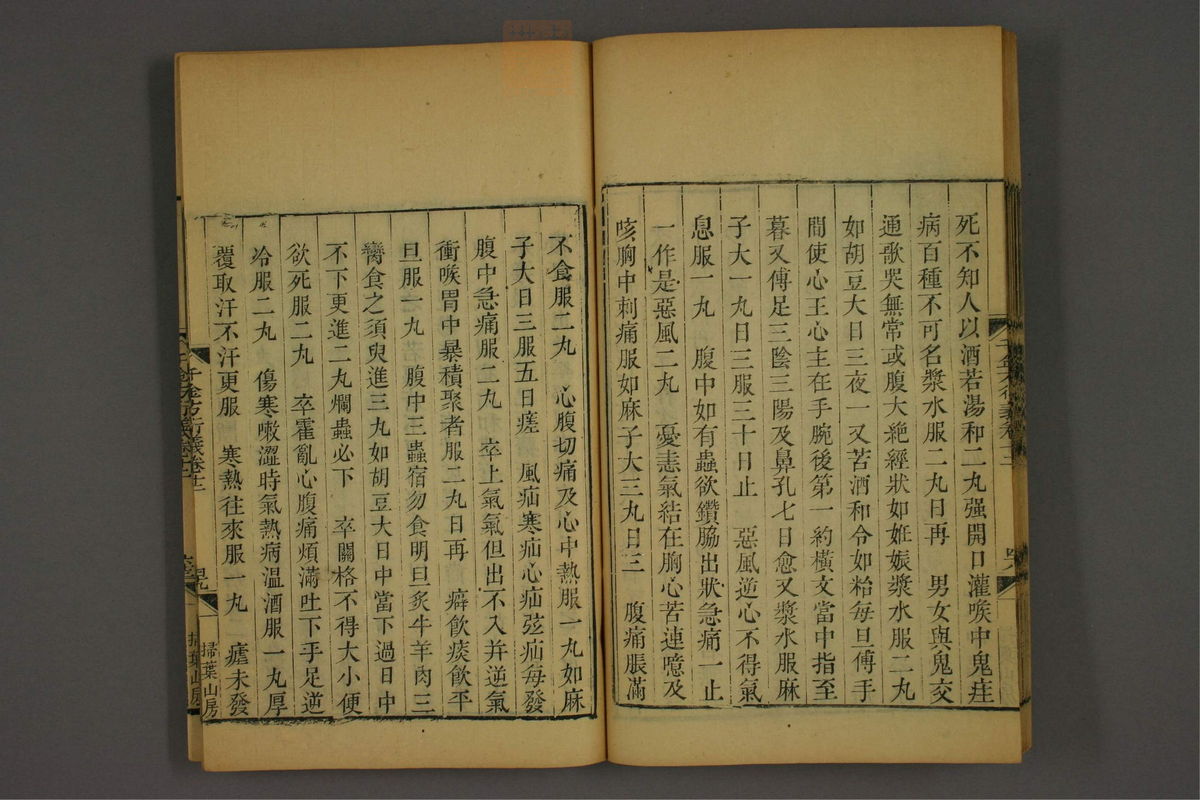 死不知人以酒若湯和二丸强開口灌喉中鬼疰
病百種不可名漿水服二丸日再　男女與鬼交
通歌哭無常或腹大絶經狀如姙娠漿水服二丸
如胡豆大日三夜一又苦酒和令如粭每旦傅手
間使心王心主在手腕後第一約橫文當中指至
暮又傅足三陰三陽及鼻孔七日愈又漿水服麻
子大一丸日三服三十日止　惡風逆心不得氣
息服一丸　腹中如有蟲欲鑽脇出狀急痛一止
一作是惡風二丸　憂恚氣結在胸心苦連噫及
咳胸中刺痛服如麻子大三丸日三　腹痛脹滿
不食服二丸　心腹切痛及心中熱服一丸如麻
子大日三服五日瘥　風疝寒疝心疝弦疝每發
腹中急痛服二丸　卒上氣氣但出不入并逆氣
衝喉胃中暴積聚者服二丸日再　癖飮痰飮平
旦服一丸　腹中三蟲宿勿食明旦炙牛羊肉三
臠食之須臾進三丸如胡豆大日中當下過日中
不下更進二丸爛蟲必下　卒關格不得大小便
欲死服二丸　卒霍亂心腹痛煩滿吐下手足逆
冷服二丸　傷寒嗽澀時氣熱病温酒服一丸厚
覆取汗不汗更服　寒熱往來服一丸　瘧未發
千金方衍義卷十二
掃葉山房